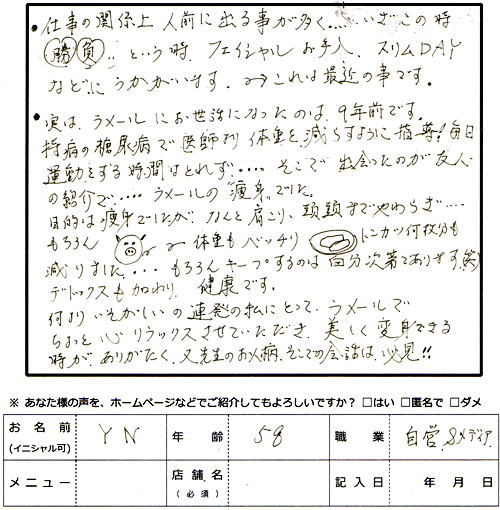 • 仕事の関係上 人前に出る事が多く・・・いざこの時
勝負!! という時、フェイシャルお手入、スリムDAY
などにうかがいます。これは最近の事です。
• 実は、ラメールにお世話になったのは、9年前です。
持病の糖尿病で医師より体重を減らすように指導!毎日
運動をする時間はとれず・・・・そこで出会ったのが友人
の紹介で・・・・ラメールの"痩身"でした。
目的は痩身でしたが、なんと肩こり、頭頭までやわらぎ・・・・
もちろん 体重もバッチリ トンカツ何枚分も
減りました・・・もちろんキープするのは自分次第でありますが(笑)
デトックスも加わり、健康です。
何よりいそがしいの連発の私にとって、ラメールで
ちょっと心リラックスさせていただき、美しく変身できる
時が、ありがたく、又先生のお人柄、そこでの会話は、必見!!
※ あなた様の声を、ホームページなどでご紹介してもよろしいですか? □はい □匿名で □ダメ
お名前(イニシャル可) YN 年齢 58 職業 自営、&メディア
メニュー 店舗名(必須) 記入日 年 月 日